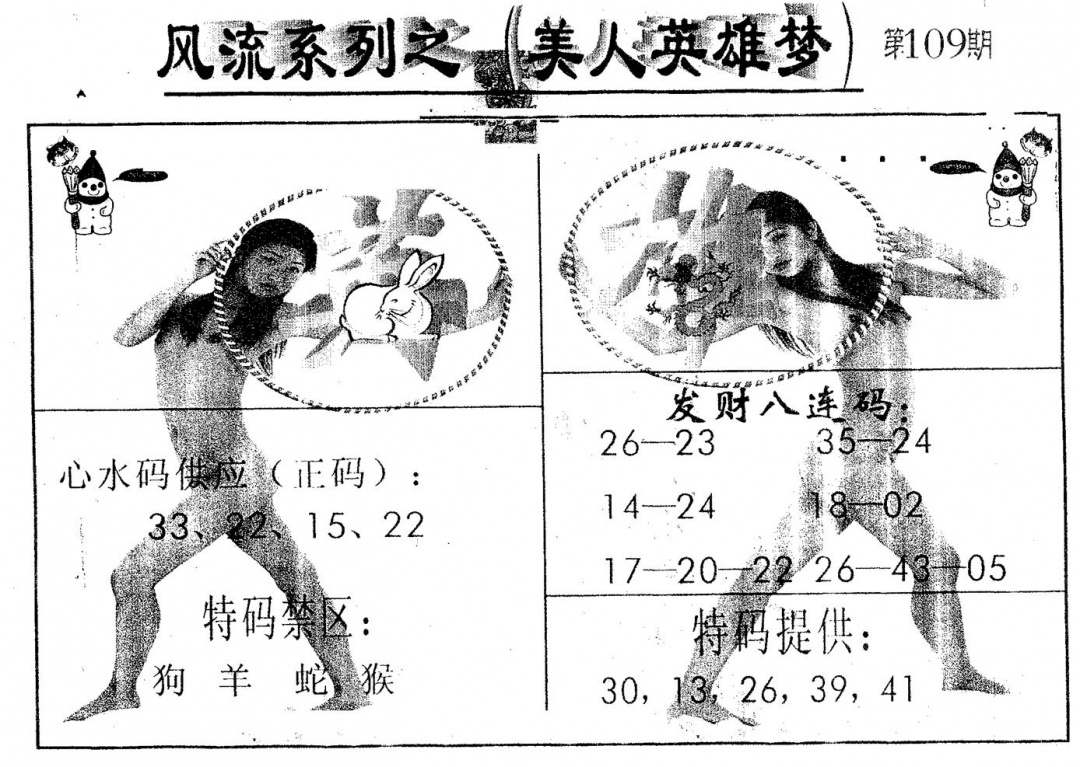 风流系列之（美人英雄梦）
第109期
心水码供应（正码）：
33、22、15、22
特码禁区：
狗 羊 蛇 猴
发财八连码：
26—23 35—24
14—24 18—02
17—20—22 26—43—05
特码提供：
30，13，26，39，41